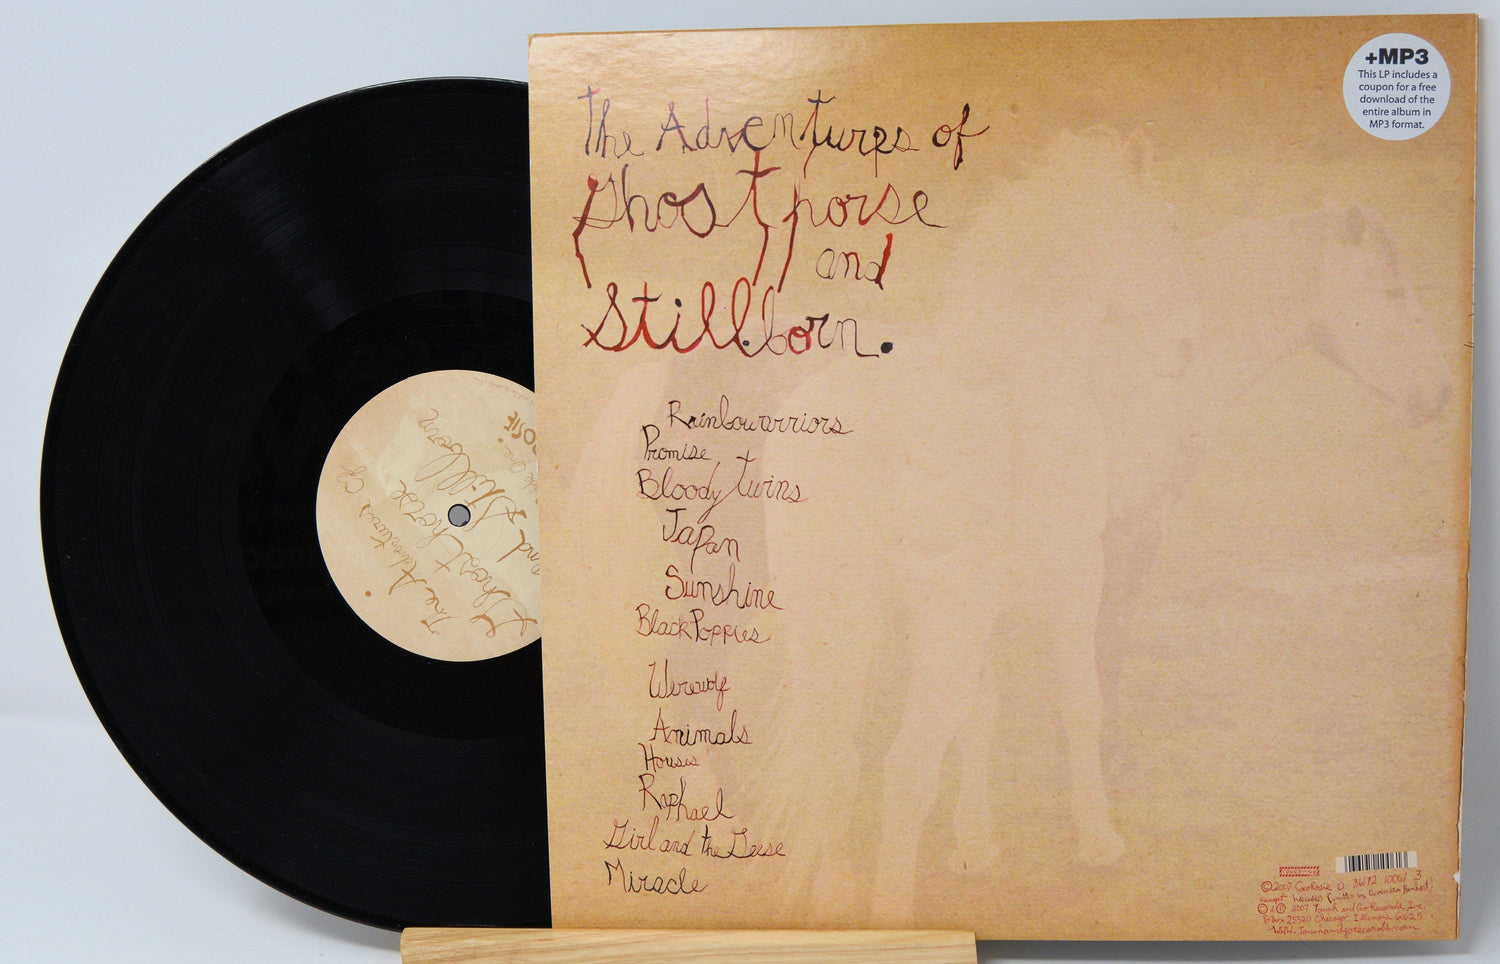 The Adventures of
Ghosthorse
and
Stillborn.
Rainbowarriors
Promise
Bloody twins
Japan
Sunshine
Black Poppies
Werewolf
Animals
Houses
Raphael
Girl and the Geese
Miracle
+MP3
This LP includes a
coupon for a free
download of the
entire album in
MP3 format.
The Adventures of
Ghosthorse
and Stillborn
OSIE
©2007 CocoRosie 0 36172 10061 3
except houses (written by Devendra Banhart)
©&℗ 2007 Touch and Go Records, Inc.
P.O. Box 25520 Chicago, Illinois 60625
www.touchandgorecords.com